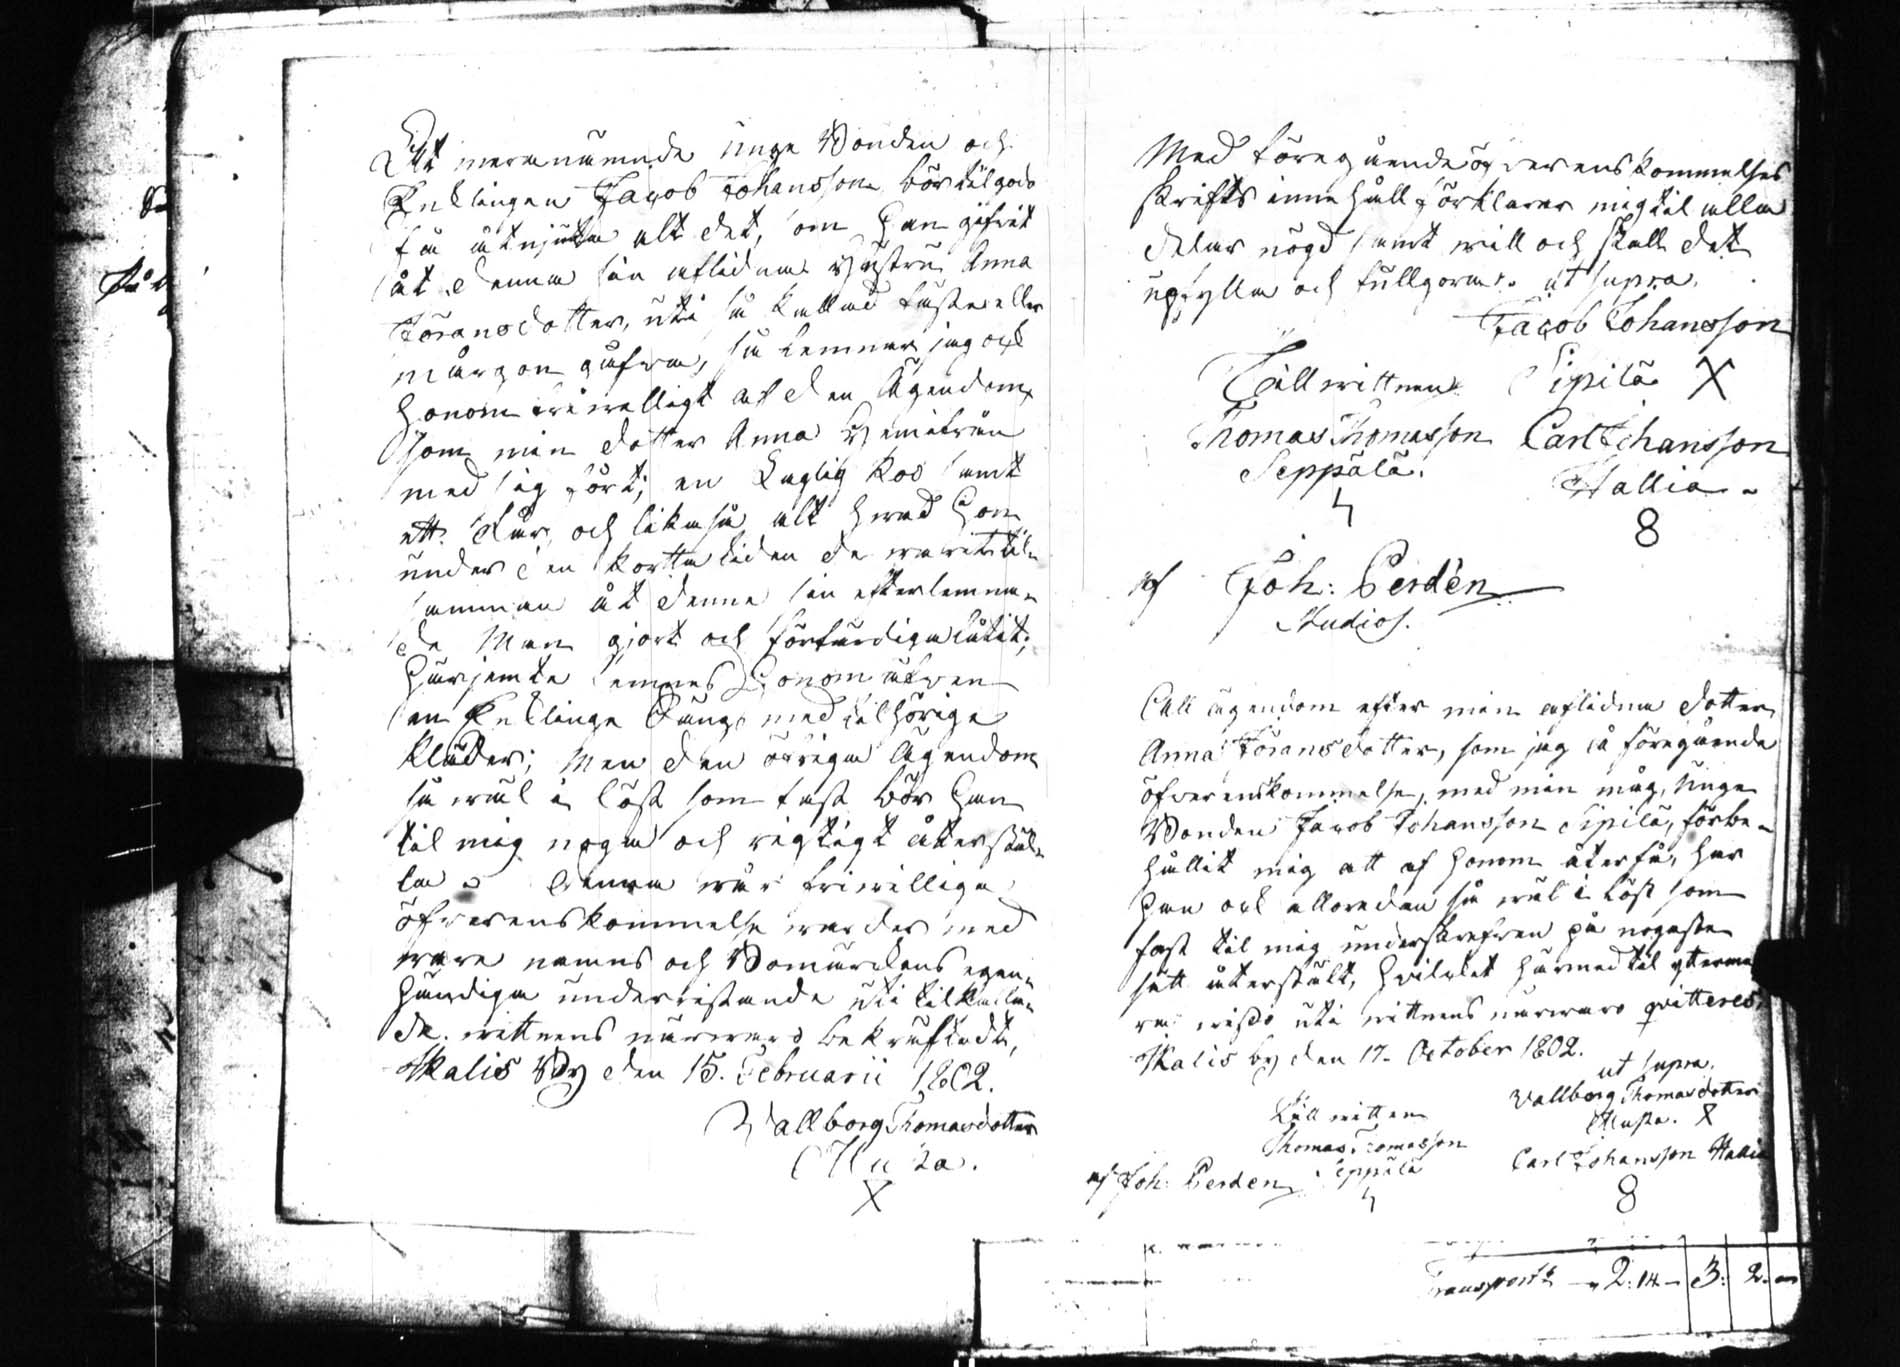 Att meranämnde unge Bonden och
Enklingen Jacob Johansson bör tilgodo
få åtnjuta alt det, som han gifvit
åt denna sin aflidna Hustru Anna
Göransdotter, uti så kallad fäste eller
mårgon gåfva, så lemnar jag ock
honom friwilligt af den Ägendom
som min dotter Anna hemifrån
med sig fört; en duglig Koo samt
ett Får, och likaså alt hwad hon
under den kortta tiden de warit til-
samman åt denne sin efterlemna-
de Man gjort och förfärdiga låtit;
härjemte lemnas honom äfwen
en Enklinge Säng med tilhörige
Kläder; Men den öfriga Ägendom
så wäl i löst som fast bör han
til mig noga och rigtigt återstäl-
la. Denna wår friwilliga
öfverenskommelse warder med
wåre namns och Bomärkens egen-
händiga underristande uti tilkalla-
de wittnens närwaro bekräftadt,
Skalis By den 15. Februarii 1802.
Wallborg Thomasdotter
X
Med föregående öfverenskommelses
skrifts innehåll förklarar mig til alla
delar nögd samt will och skall det
upfylla och fullgöra. ut supra.
Jacob Johansson
Till wittnen Sipilä X
Thomas Thomasson Carl Johansson
Seppälä. Hallia
4 8
af Joh: Perdén
Studios.
All ägendom efter min aflidna dotter
Anna Göransdotter, som jag i föregående
öfverenskommelse, med min måg, Unge
Bonden Jacob Johansson Sipilä, förbe-
hållit mig att af honom återfå, har
han ock allaredan så wäl i löst som
fast til mig underskrefven på nogaste
sätt återstält, hvilket härmed til ytterme-
ra wisso uti wittnens närwaro qvitteres.
Skalis by den 17. October 1802.
ut supra.
Till wittnen Wallborg Thomasdotter
X
Thomas Thomasson Carl Johansson Hallia
af Joh: Perden Seppälä
4 8
Transport 2:14 3: 2.